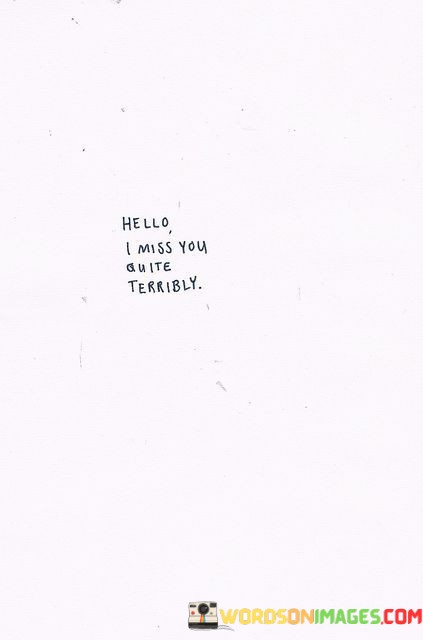 HELLO,
I MISS YOU
QUITE
TERRIBLY.
WORDSONIMAGES.COM